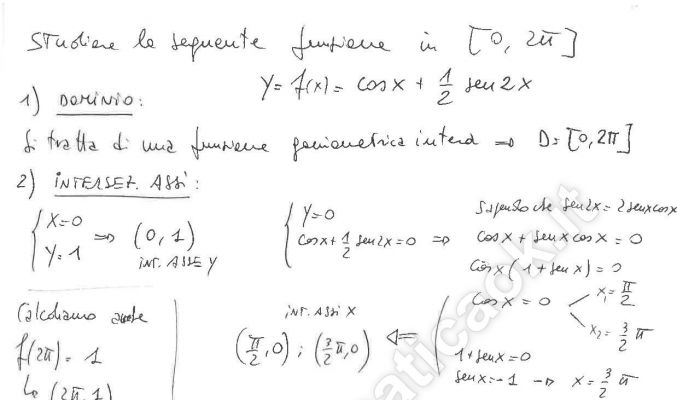 Studiare la seguente funzione in [0, 2π]
Y = f(x) = cosx + 1/2 sen2x
1) DOMINIO:
Si tratta di una funzione goniometrica intera ⇒ D = [0, 2π]
2) INTERSEZ. ASSI:
{ X=0
Y=1 ⇒ (0, 1)
INT. ASSE Y
{ Y=0
cosx + 1/2 sen2x = 0 ⇒
Sapendo che sen2x = 2senxcosx
cosx + senxcosx = 0
cosx (1 + senx) = 0
cosx = 0
x₁ = π/2
x₂ = 3/2 π
1 + senx = 0
senx = -1 → x = 3/2 π
INT. ASSI X
(π/2, 0) ; (3/2 π, 0) ⇐
Calcoliamo anche
f(2π) = 1
(2π, 1)
maticaok.it